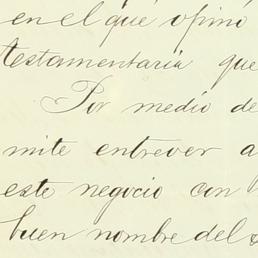 en el qué opinó
testamentaria que
Por medio de
mite entrever a
este negocio con
buen nombre del